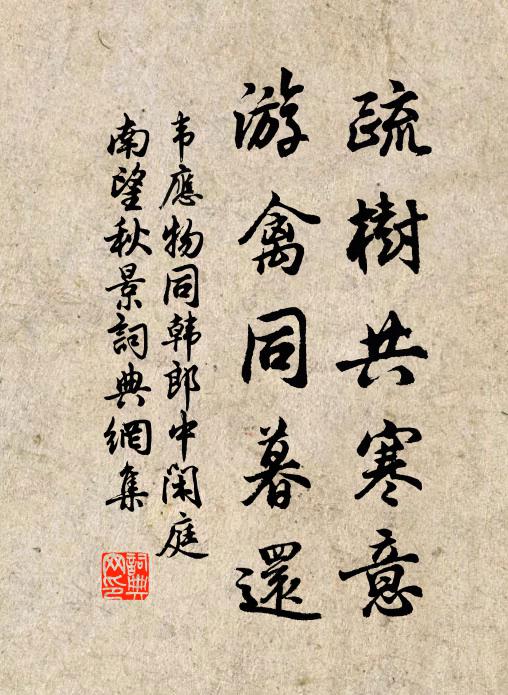 疏樹共寒意
游禽同暮還
韦應物同韩郎中闲庭
南望秋景詞典網集
詞典
网印